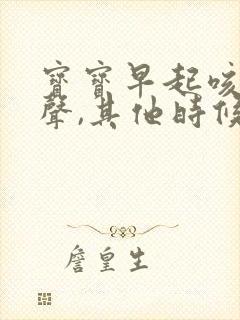 寶寶早起咳
聲,其他時候
詹皇生